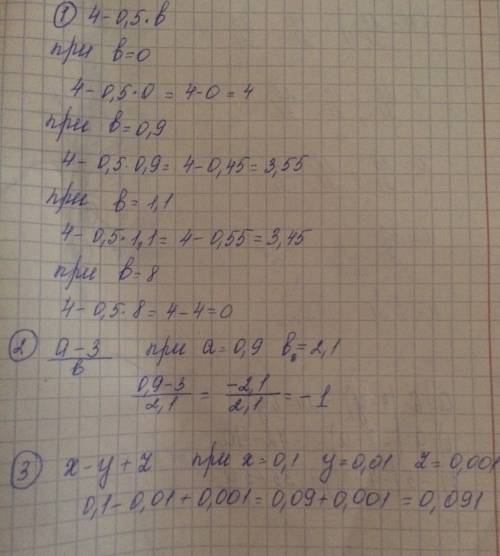 ① 4-0,5·в
при в=0
4-0,5·0 = 4-0 = 4
при в=0,9
4- 0,5·0,9= 4-0,45=3,55
при в=1,1
4-0,5·1,1= 4-0,55=3,45
при в=8
4-0,5·8=4-4=0
② (а-3)/в при а=0,9 в=2,1
(0,9-3)/2,1 = (-2,1)/2,1 = -1
③ x-y+z при x=0,1 y=0,01 z=0,001
0,1-0,01+0,001=0,09+0,001=0,091